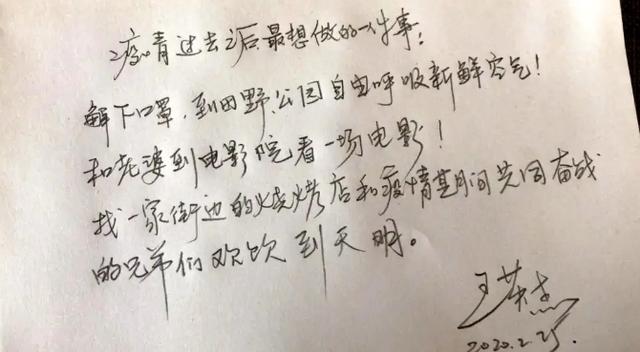 疫情过去之后最想做的一件事：
解下口罩，到田野、公园自由呼吸新鲜空气！
和老婆到电影院看一场电影！
找一家街边的烧烤店和疫情期间共同奋战
的兄弟们欢饮到天明。
王
2020.2.25.